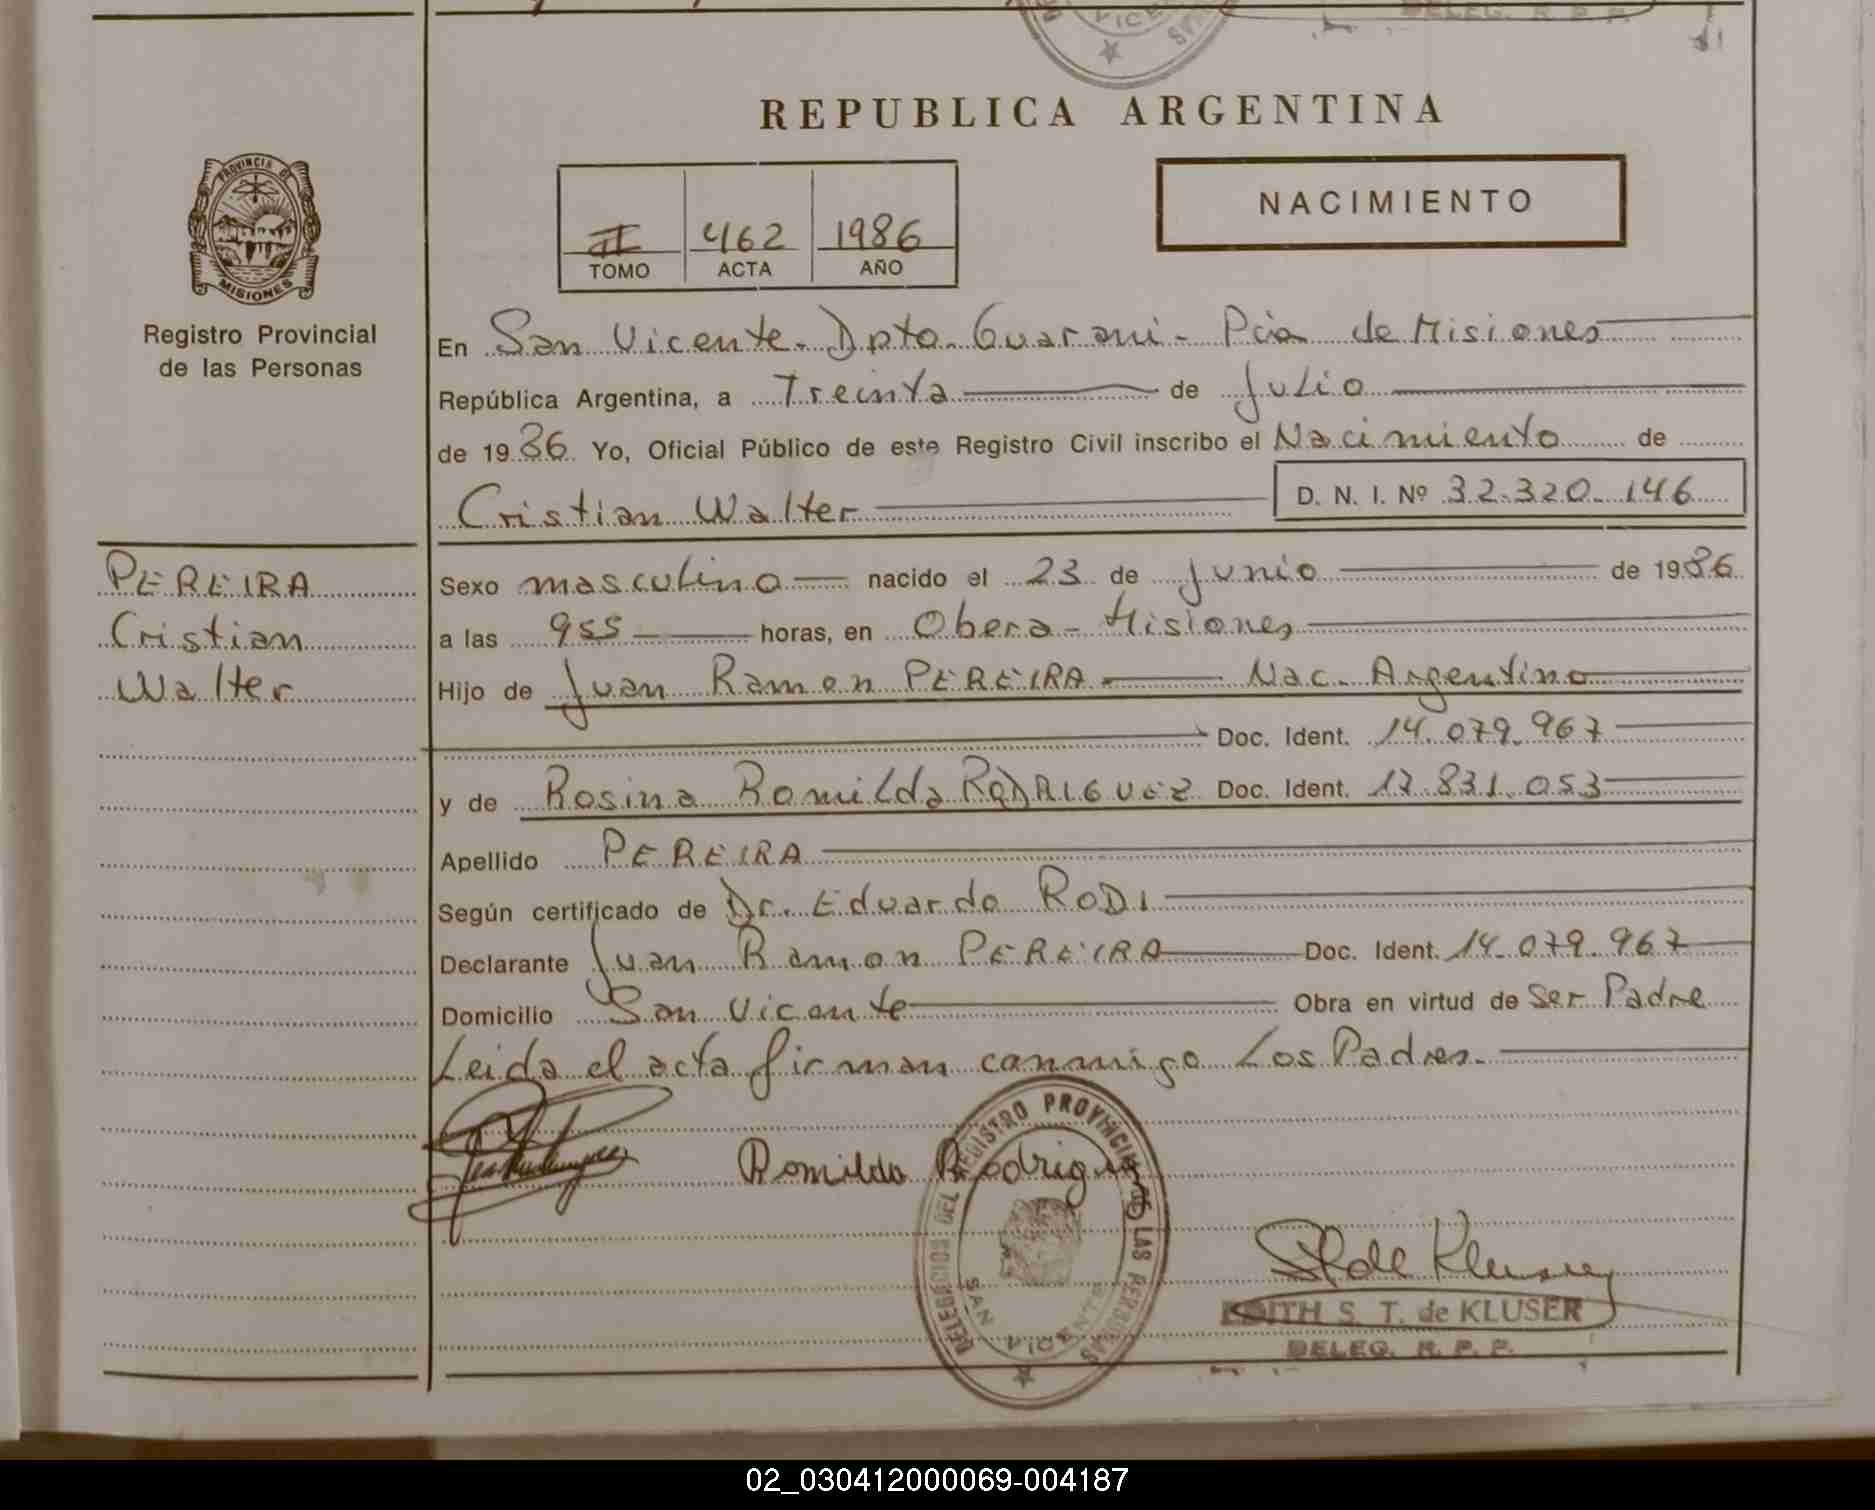 DELEG. R. P. P.
VICE
REPUBLICA ARGENTINA
PROVINCIA DE
MISIONES
Registro Provincial
de las Personas
II 462 1986
TOMO ACTA AÑO
NACIMIENTO
En San Vicente. Dpto. Guarani - Pcia de Misiones
República Argentina, a Treinta de Julio
de 1986 Yo, Oficial Público de este Registro Civil inscribo el Nacimiento de
Cristian Walter D. N. I. Nº 32.320.146
PEREIRA
Cristian
Walter
Sexo masculino nacido el 23 de Junio de 1986
a las 955 horas, en Obera - Misiones
Hijo de Juan Ramon PEREIRA Nac. Argentino
Doc. Ident. 14.079.967
y de Rosina Romilda RODRIGUEZ Doc. Ident. 17.831.053
Apellido PEREIRA
Según certificado de Dr. Eduardo RODI
Declarante Juan Ramon PEREIRA Doc. Ident. 14.079.967
Domicilio San Vicente Obra en virtud de Ser Padre
Leida el acta firman conmigo Los Padres.
Romilda Rodriguez
DELEGACION DEL REGISTRO PROVINCIAL DE LAS PERSONAS
SAN VICENTE
de Kluser
EDITH S. T. de KLUSER
DELEG. R. P. P.
02_030412000069-004187